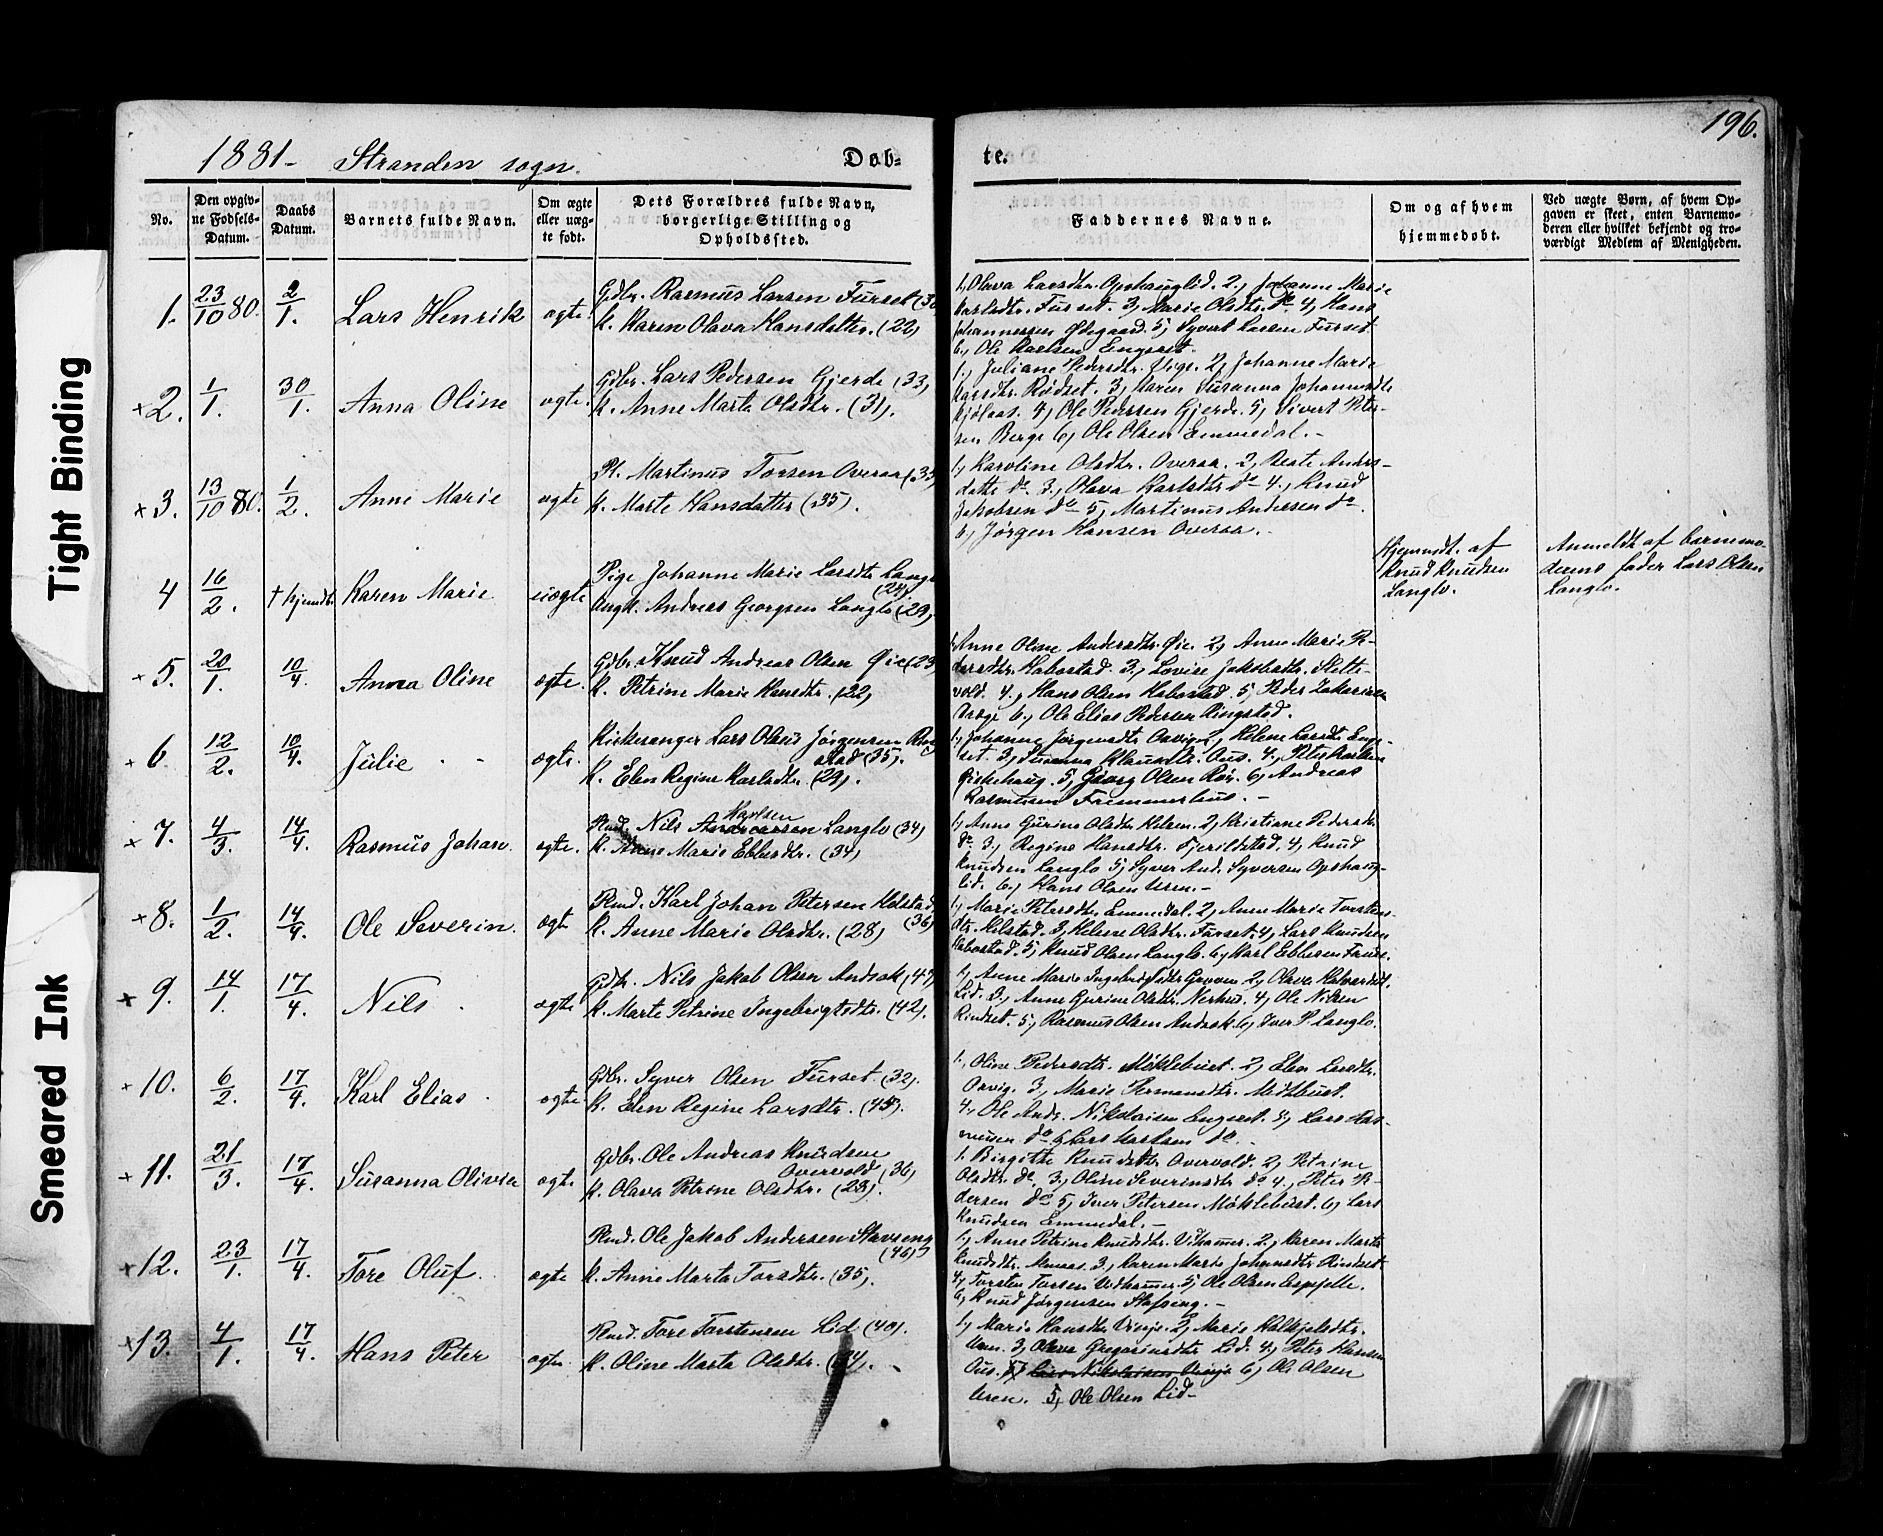 196.
1881 - Stranden sogn.
Døb=
te.
Tight Binding
Smeared Ink
No.
Den opgiv-
ne Fødsels-
Datum.
Daabs
Datum.
Barnets fulde Navn.
Om ægte
eller uæg-
te født.
Dets Forældres fulde Navn,
borgerlige Stilling og
Opholdssted.
Faddernes Navne.
Om og af hvem
hjemmedøbt.
Ved uægte Børn, af hvem Op-
gaven er skeet, enten Barnemo-
deren eller hvilket bekjendt og tro-
værdigt Medlem af Menigheden.
1. 23/10 80. 2/1. Lars Henrik ægte
Gdbr. Rasmus Larsen Furset
K. Karen Olava Hansdatter. (22)
1, Olava Larsdtr. Opshauglid. 2, Johanne Marie
Karlsdtr. Furset. 3, Marie Olsdtr. do 4, Hans
Johannessen Ødegaard. 5, Syvert Larsen Furset
6, Ole Karlsen Engeset.
x 2. 1/1. 30/1. Anna Oline ægte.
Gdbr. Lars Pedersen Gjerde (33)
K. Anne Marta Olsdtr. (31).
1, Juliane Pedersdtr. Vige. 2, Johanne Marie
Larsdtr. Rødset. 3, Karen Susanna Johannesdtr
Kjølaas. 4, Ole Pedersen Gjerde. 5, Sivert Peter-
sen Berge 6, Ole Olsen Emmedal. -
x 3. 13/10 80. 1/2. Anne Marie ægte
Pl. Martinus Torsen Overaa (35)
K. Marte Hansdatter (35).
1, Karoline Olsdtr. Overaa. 2, Beate Anders-
datte do. 3, Olava Karlsdtr do 4, Knud
Jakobsen do 5, Martinus Andersen do.
6, Jørgen Hansen Overaa. -
4 16/2. † hjemdt. Karen Marie uægte
Pige Johanne Marie Larsdtr Langlo
(24)
Ungk. Andreas Georgsen Langlo (29).
Hjemmdt. af
Knud Knudsen
Langlo.
Anmeldt af barnemo-
derens fader Lars Olsen
Langlo.
x 5. 20/1. 10/4. Anna Oline ægte.
Gdbr. Knud Andreas Olsen Øie (23)
K. Petrine Marie Hansdtr. (22)
1, Anne Oline Andersdtr. Øie. 2, Anne Marie P-
dersdtr. Habostad. 3, Lovise Jakobsdtr. Slett-
vold. 4, Hans Olsen Habostad. 5, Peder Zakariasen
6, Ole Elias Pedersen Ringstad.
x 6 12/2. 10/4. Julie ægte.
Kirkesanger Lars Olaus Jørgensen Ring
stad (35).
K. Elen Regine Karlsdtr. (29).
1, Johanne Jørgensdtr. Aavig. 2, Helene Larsdtr. Enge-
set. 3, Susanna Klausdtr. Aus. 4, Peter Karlsen
5, Georg Olsen Røv. 6, Andreas
Rasmussen Fremmerhus. -
x 7. 4/3. 14/4. Rasmus Johan. ægte.
Rmd. Nils Andreassen Langlo (34)
Karlsen
K. Anne Marie Ebbesdtr. (34)
1, Anne Gurine Olsdtr. Hilsen. 2, Kristiane Pedersdtr.
do 3, Regine Hansdtr. Fjerildstad. 4, Knud
Knudsen Langlo 5, Syver And. Syversen Opshaug-
lid. 6, Hans Olsen Uren. -
x 8. 1/2. 14/4. Ole Severin. ægte
Rmd. Karl Johan Petersen Helstad
(36)
K. Anne Marie Olsdtr. (28)
1, Marie Petersdtr. Emmedal. 2, Anne Marie Torstens-
dtr. Helstad. 3, Helene Olsdtr. Furset. 4, Lars Knudsen
Habostad. 5, Knud Olsen Langlo. 6, Karl Ebbesen Furset.
x 9. 14/1. 17/4. Nils ægte
Gdbr. Nils Jakob Olsen Andsok (47)
K. Marte Petrine Ingebrigtsdtr. (42).
1, Anne Marie Ingebrigtsdtr. 2, Olava Halvardsdtr.
Lid. 3, Anne Gurine Olsdtr. Nerhus. 4, Ole Nilsen
Rindset. 5, Rasmus Olsen Andsok. 6, Iver P. Langlo.
x 10. 6/2. 17/4. Karl Elias ægte
Gdbr. Syver Olsen Furset (32).
K. Elen Regine Larsdtr. (45).
1, Oline Pedersdtr. Møklebust. 2, Elen Larsdtr.
Aavig. 3, Marie Hermansdtr. Meklbust.
4, Ole Andr. Nikolaisen Engeset. 5, Lars Ras-
mussen do 6, Lars Karlsen do. -
x 11. 21/3. 17/4. Susanna Olivia ægte
Gdbr. Ole Andreas Knudsen
Overvold (36)
K. Olava Petrine Olsdtr. (23).
1, Birgitte Knudsdtr. Overvold. 2, Petrine
Olsdtr. do. 3, Oline Severinsdtr do 4, Peter P-
dersen do 5, Iver Petersen Møklebust. 6, Lars
Knudsen Emmedal. -
x 12. 23/1. 17/4. Tore Oluf. ægte
Rmd. Ole Jakob Andersen Stavseng
(46)
K. Anne Marta Torsdtr. (35).
1, Anne Petrine Knudsdtr. Vidhammer. 2, Karen Marta
Knudsdtr. 3, Karen Marte Johansdtr Rindset
4, Torsten Torsen Vidhammer. 5, Ole Olsen Espehjelle.
6, Knud Jørgensen Stafseng. -
x 13. 4/1. 17/4. Hans Peter ægte
Rmd. Tore Torstensen Lid (40).
K. Oline Marta Olsdtr.
1, Marie Hansdtr Vinje. 2, Marie Halkjelsdtr.
Uren. 3, Olava Gregoriusdtr Lid. 4, Peter Hansen
Aus. Lars Nikolaisen Vinje 6, Ole Olsen
Uren. 5, Ole Olsen Lid -